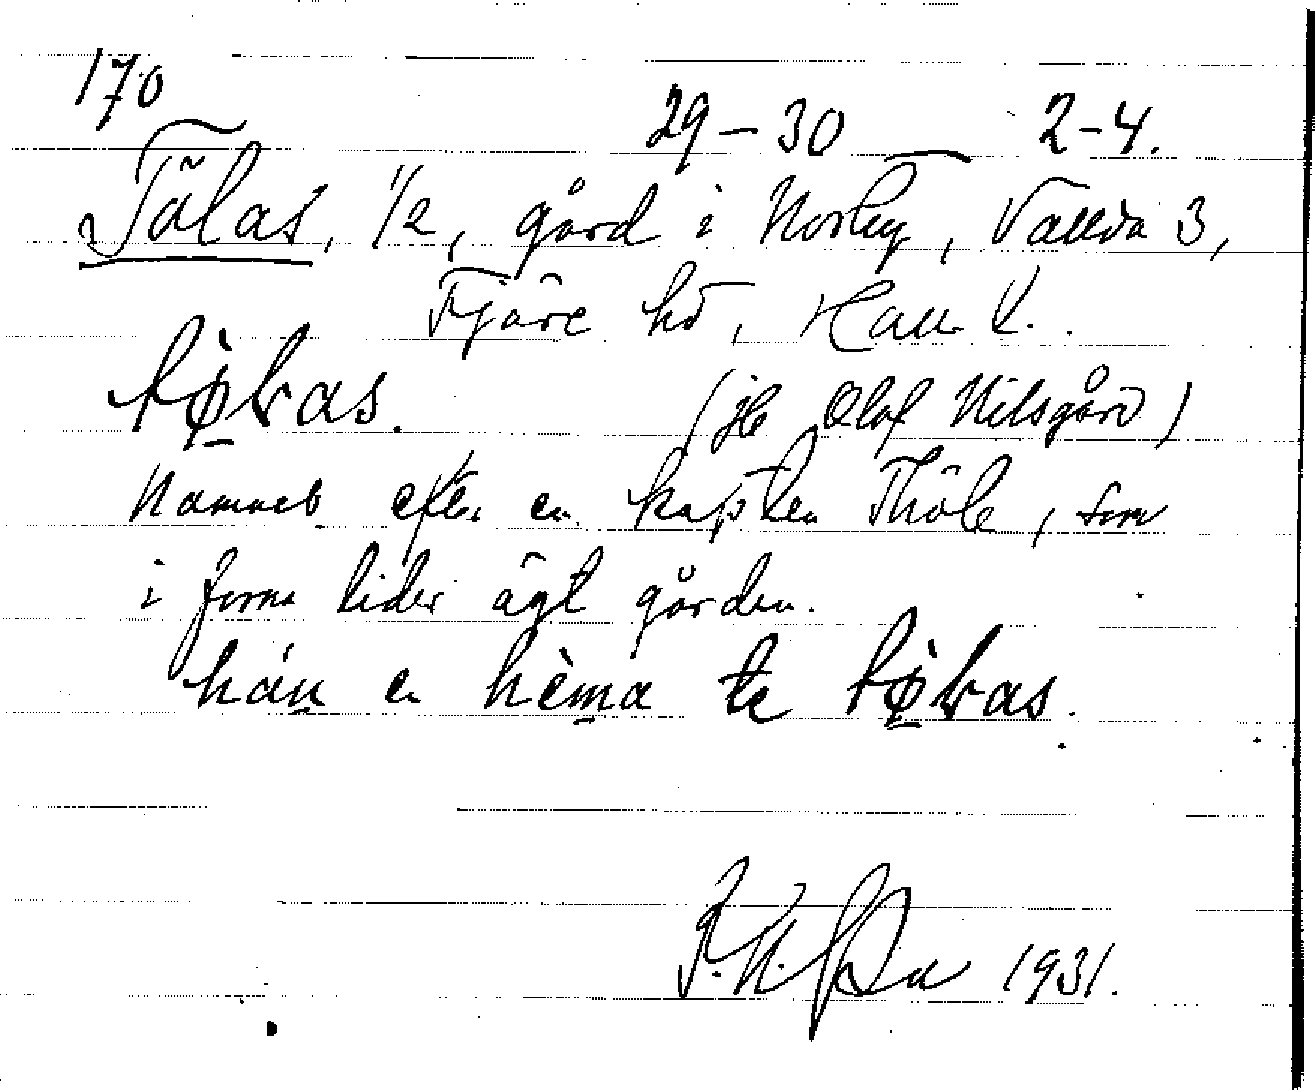 170
29-30 — 2-4.
Tölas, 1/2, gård i Norby, Vallda 3,
Fjäre hd, Hall. l.
tø̀ɽas.
(jfr Olof Nilsgård)
Namnet efter en kapten Thöle, som
i forna tider ägt gården.
hán e hèma te tø̀ɽas.
1931.